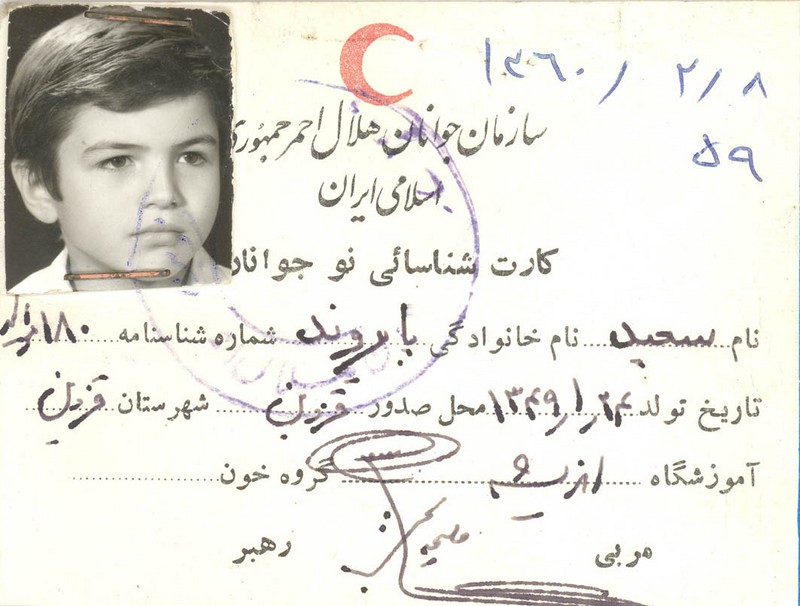 ۱۳۶۰/۲/۸
۵۹
سازمان جوانان هلال احمر جمهوری
اسلامی ایران
کارت شناسائی نو جوانان
نام سعید نام خانوادگی بابروند شماره شناسنامه ۱۸۰
تاریخ تولد ۱۳۴۹/۱/۲۴ محل صدور قزوین شهرستان قزوین
آموزشگاه گروه خون
مربی رهبر